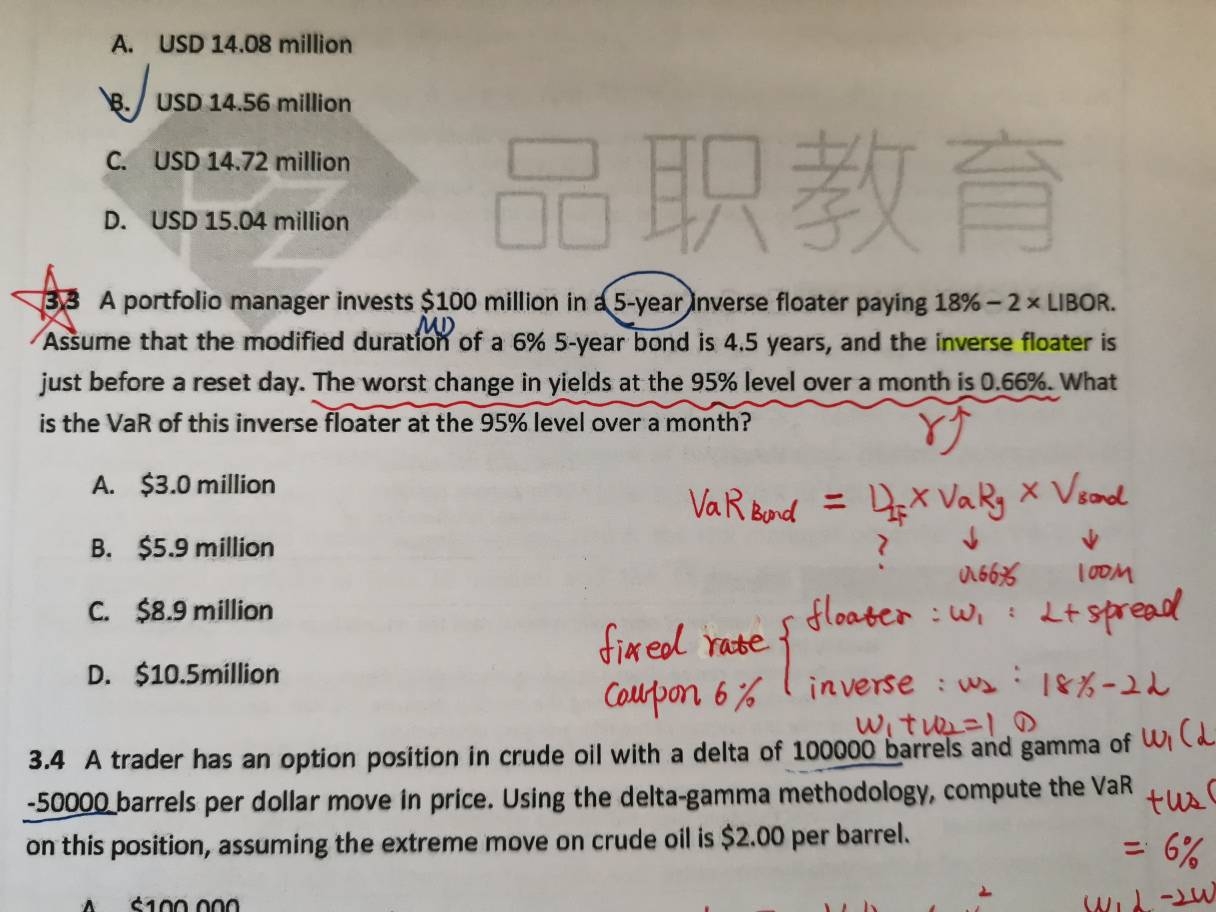 A. USD 14.08 million
B. USD 14.56 million
C. USD 14.72 million
D. USD 15.04 million
品职教育
3.3 A portfolio manager invests $100 million in a 5-year inverse floater paying 18% – 2 × LIBOR.
MD
Assume that the modified duration of a 6% 5-year bond is 4.5 years, and the inverse floater is
just before a reset day. The worst change in yields at the 95% level over a month is 0.66%. What
is the VaR of this inverse floater at the 95% level over a month?
r↑
A. $3.0 million
B. $5.9 million
C. $8.9 million
D. $10.5million
VaR Bond = D IF × VaRy × V Bond
? ↓ ↓
0.66% 100M
fixed rate
coupon 6%
floater : w1 : L + spread
inverse : w2 : 18% - 2L
w1 + w2 = 1 ①
w1 (L
+ w2 (
= 6%
w1 L - 2w
3.4 A trader has an option position in crude oil with a delta of 100000 barrels and gamma of
-50000 barrels per dollar move in price. Using the delta-gamma methodology, compute the VaR
on this position, assuming the extreme move on crude oil is $2.00 per barrel.
A $100,000